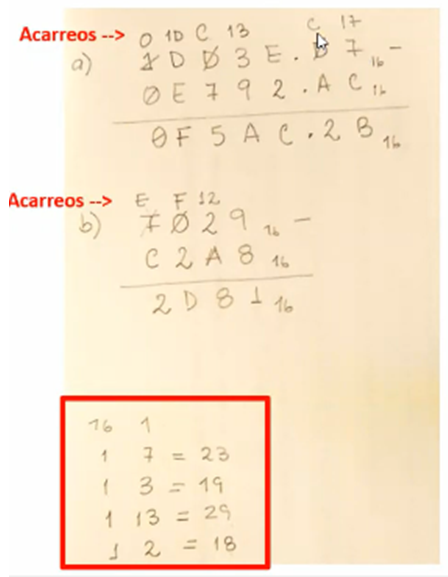 Acarreos --> 0 1D C 13 C 17
a) 1DD3E.D7₁₆ −
0E792.AC₁₆
0F5AC.2B₁₆
Acarreos --> E F 12
b) F029₁₆ −
C2A8₁₆
2D81₁₆
16 1
1 7 = 23
1 3 = 19
1 13 = 29
1 2 = 18